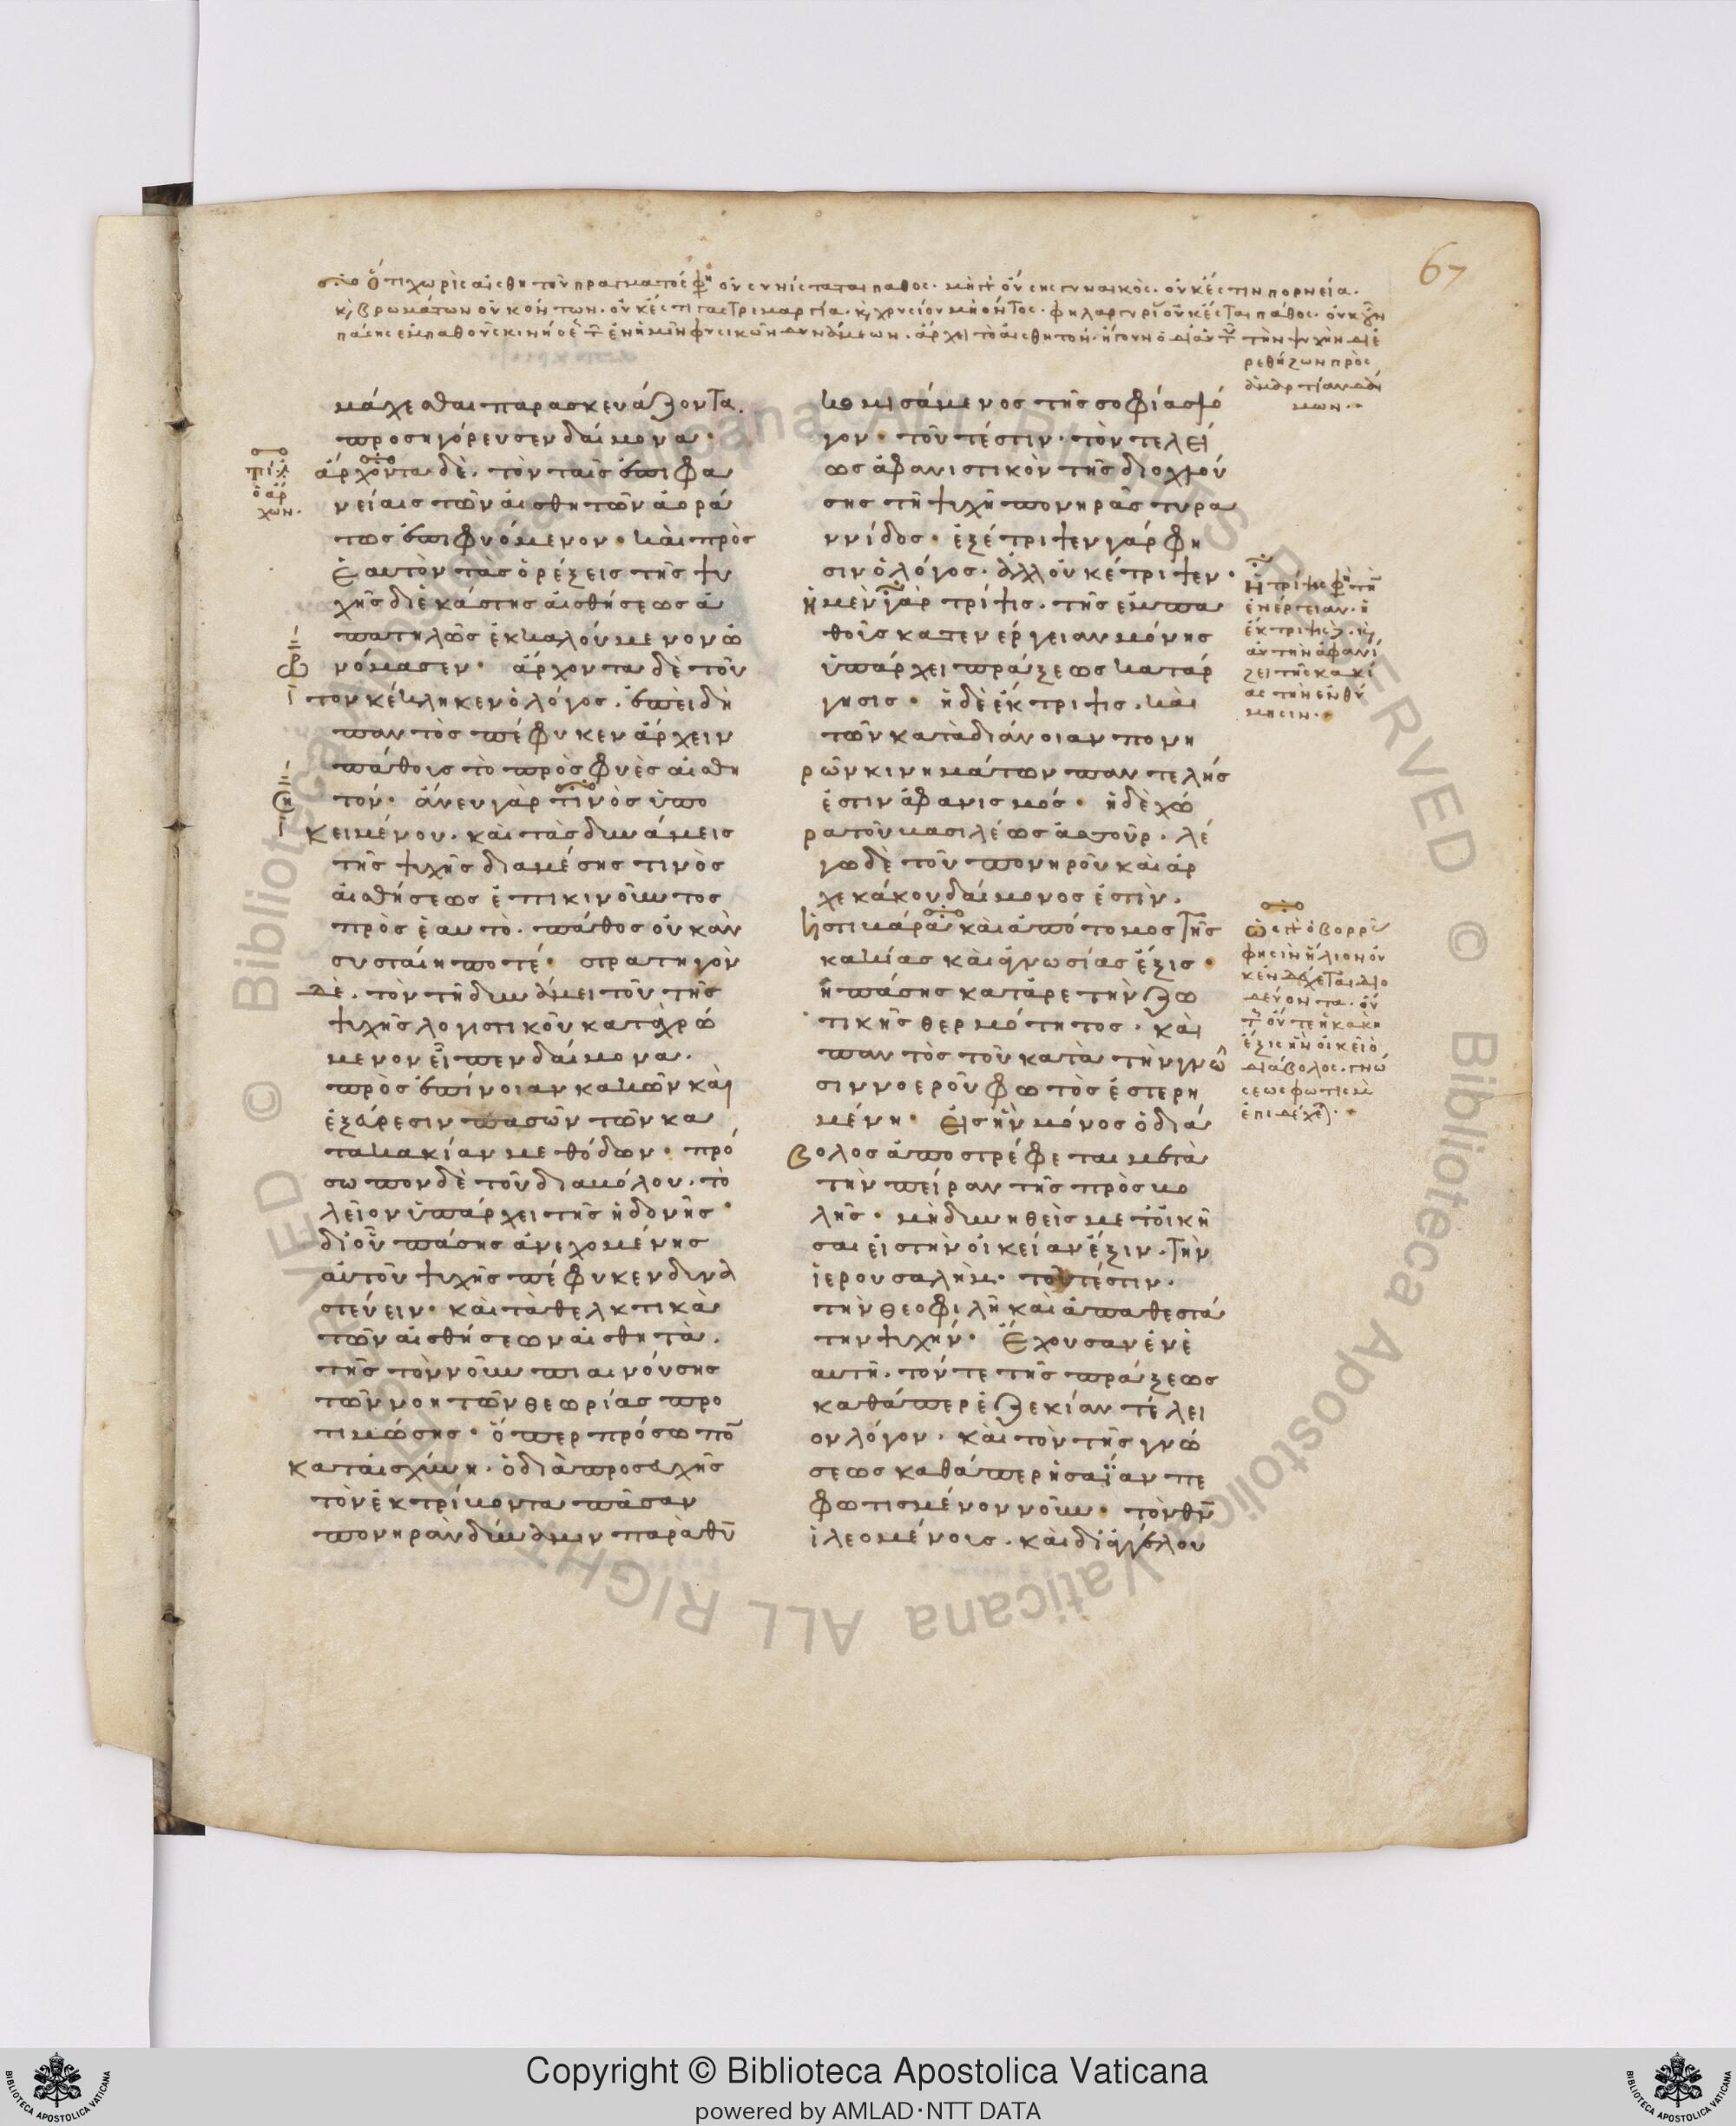 67
Ὅτι χωρὶς αἰσθητοῦ πράγματος φη οὐ συνίσταται πάθος· μὴ γὰρ οὔσης γυναικὸς· οὐκ ἔστιν πορνεία·
κ, βρωμάτων οὐκ ὄντων· οὐκ ἔστι γαστριμαργία· κ, χρυσίου μὴ ὄντος· φηλαργυρί οὐκ ἔσται πάθος·
πάσης ἐμπαθοῦς κινήσε τ ἐν ἡμῖν φυσικῶν δυνάμεων· ἄρχει τὸ αἰσθητὸν· ἤγουν ὁ δι' αὐτ τὴν ψυχὴν διε
ρεθήζων πρὸς
ἁμαρτίαν δαί
μων·
μάχεσθαι παρασκευάζοντα.
προσηγόρευσεν δαίμονα·
ἄρχοντα δὲ· τὸν ταῖς ἐπιφα
νείαις τῶν αἰσθητῶν ἀορά
τως ἐπιφυόμενον· καὶ πρὸς
ἑαυτὸν τὰς ὀρέξεις τῆς ψυ
χῆς δι' ἑκάστης αἰσθήσεως ἀ
πατηλῶς ἐκκαλούμενον ὠ
νόμασεν· ἄρχοντα δὲ τοῦ
τον κέκληκεν ὁ λόγος· ἐπειδὴ
παντὸς πέφυκεν ἄρχειν
πάθους τὸ προσφυὲς αἰσθη
τόν· ἄνευ γὰρ τινὸς ὑπο
κειμένου· καὶ τὰς δυνάμεις
τῆς ψυχῆς διὰ μέσης τινὸς
αἰσθήσεως ἐπικινοῦντος
πρὸς ἑαυτὸ· πάθος οὐκ ἂν
συσταίη ποτέ· στρατηγὸν
δὲ· τὸν τῇ δυνάμει τοῦ τῆς
ψυχῆς λογιστικοῦ καταχρώ
μενον εἶπεν δαίμονα·
πρὸς ἐπίνοιαν κακῶν καὶ
ἐξάρεσιν πασῶν τῶν κα
τὰ κακίαν μεθόδων· πρό
σωπον δὲ τοῦ διαβόλου· τὸ
λεῖον ὑπάρχει τῆς ἡδονῆς·
δι' οὗ πάσης ἀνεχομένης
αὐτοῦ ψυχῆς πέφυκεν δυνα
στεύειν· καὶ τὰ θελκτικὰ
τῶν αἰσθήσεων αἰσθητὰ·
τῆς τὸν νοῦν πιαινούσης
τῶν νοητῶν θεωρίας προ
τιμώσης· ὅπερ πρόσωπον
καταισχύνη· ὁ διὰ προσευχῆς
τὸν ἐκτρίβοντα πᾶσαν
πονηρὰν δύναμιν παρὰ θῦ
κομισάμενος τῆς σοφίας λό
γον· τοῦτέστιν· τὸν τελεί
ως ἀφανιστικὸν τῆς διοχλού
σης τῇ ψυχῇ πονηρᾶς τυρα
ννίδος· ἐξέτριψεν γάρ φη
σιν ὁ λόγος· ἀλλ' οὐκ ἔτριψεν·
ἡ μὲν γὰρ τρίψις· τῆς ἐμπα
θοῦς κατ' ενέργειαν μόνης
ὑπάρχει πράξεως κατάρ
γησις· ἡ δὲ ἔκτριψις· καὶ
τῶν κατὰ διάνοιαν πονη
ρῶν κινημάτων παντελής
ἐστιν ἀφανισμός· ἡ δὲ χώ
ρα τοῦ βασιλέως ἀσσοῦρ· λέ
γω δὲ τοῦ πονηροῦ καὶ ἀρ
χεκάκου δαίμονος ἐστὶν·
ἡ στιβαρὰ καὶ ἀπότομος τῆς
κακίας καὶ ἀγνωσίας ἕξις·
ἡ πάσης κατ' ἀρετὴν ζω
τικῆς θερμότητος· καὶ
παντὸς τοῦ κατὰ τὴν γνῶ
σιν νοεροῦ φωτὸς ἐστερη
μένη· εἰς ἣν μόνος ὁ διά
βολος ἀποστρέφεται μετὰ
τὴν πεῖραν τῆς προσβο
λῆς· μὴ δυνηθεὶς μετοικῆ
σαι εἰς τὴν οἰκείαν ἕξιν· τὴν
ἱερουσαλὴμ· τοῦτέστιν·
τὴν θεοφιλῆ καὶ ἀπαθεστά
την ψυχήν· ἔχουσαν ἐν ἑ
αυτῇ· τόν τε τῆς πράξεως
καθάπερ ἐζεκίαν τέλει
ον λόγον· καὶ τὸν τῆς γνώ
σεως καθάπερ ἡσαΐαν πε
φωτισμένον νοῦν· τὸν θῦ
ἱλεομένοις· καὶ δι' ἀγγέλου
ὁ ἄρ
χων·
Ἡ τρίψις φη τὴ
ἐνέργειαν· ἡ
ἔκτριψις κ,
αὐτὴν ἀφανί
ζει τῆς κακί
ας τὴν ἐνθύ
μησιν·
Ὥσπερ ὁ βορρᾶς
φησὶν ἥλιον οὐ
κ ἐνδέχεται διο
δεύοντα· οὕ
τ οὔτε ἡ κακὴ
ἕξις ἣν οἰκεῖ ὁ
διάβολος· γνώ
σεως φωτισμ
ἐπιδέχε·
Copyright © Biblioteca Apostolica Vaticana
powered by AMLAD·NTT DATA